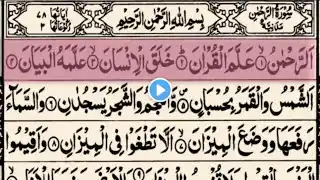 سُوْرَةُ الرَّحْمٰنِ مَدَنِيَّةٌ بِسْمِ اللهِ الرَّحْمٰنِ الرَّحِيْمِ اٰيَاتُهَا ٧٨
اَلرَّحْمٰنُ ۙ﴿١﴾ عَلَّمَ الْقُرْاٰنَ ؕ﴿٢﴾ خَلَقَ الْاِنْسَانَ ۙ﴿٣﴾ عَلَّمَهُ الْبَيَانَ ﴿٤﴾
اَلشَّمْسُ وَالْقَمَرُ بِحُسْبَانٍ ﴿٥﴾ وَّالنَّجْمُ وَالشَّجَرُ يَسْجُدٰنِ ﴿٦﴾ وَالسَّمَآءَ
رَفَعَهَا وَوَضَعَ الْمِيْزَانَ ۙ﴿٧﴾ اَلَّا تَطْغَوْا فِى الْمِيْزَانِ ﴿٨﴾ وَاَقِيْمُوا